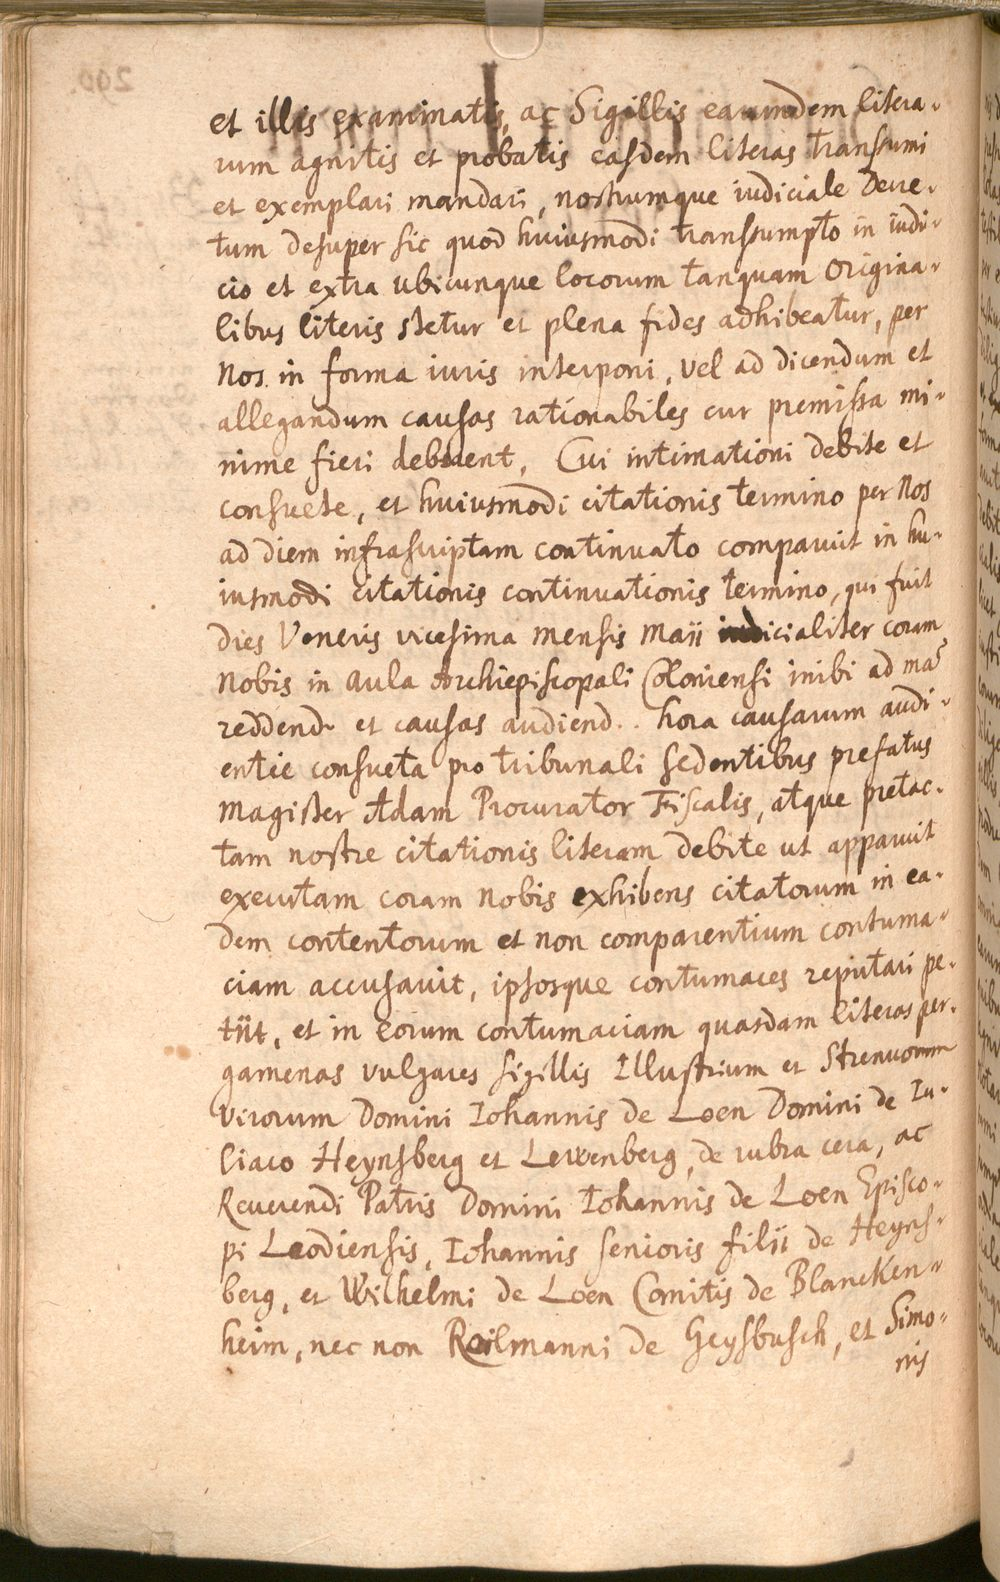 et illis examinatis, ac Sigillis earumdem litera-
rum agnitis et probatis easdem literas transsumi
et exemplari mandari, nostrumque iudiciale Decre-
tum desuper sic quod huiusmodi transsumpto in iudi-
cio et extra ubicunque locorum tanquam Origina-
libus literis stetur et plena fides adhibeatur, per
Nos in forma iuris interponi, vel ad dicendum et
allegandum causas rationabiles cur premissa mi-
nime fieri deberent, Cui intimationi debite et
consuete, et huiusmodi citationis termino per Nos
ad diem infrascriptam continuato comparuit in hu-
iusmodi citationis continuationis termino, qui fuit
dies Veneris vicesima mensis Maii iudicialiter coram
Nobis in Aula Archiepiscopali Coloniensi inibi ad
reddend. et causas audiend. . hora causarum audi-
entie consueta pro tribunali sedentibus prefatus
Magister Adam Procurator Fiscalis, atque pretac-
tam nostre citationis literam debite ut apparuit
executam coram Nobis exhibens citatorum in ea-
dem contentorum et non comparentium contuma-
ciam accusavit, ipsosque contumaces reputari pe-
tiit, et in eorum contumaciam quasdam literas per-
gamenas vulgares sigillis Illustrium et Strenuorum
Virorum Domini Iohannis de Loen Domini de Iu-
liaco Heynsberg et Lewenberg, de rubra cera, ac
Reverendi Patris Domini Iohannis de Loen Episco-
pi Leodiensis, Iohannis senioris filii de Heyns-
berg, et Wilhelmi de Loen Comitis de Blancken-
heim, nec non Roilmanni de Geysbusch, et Simo-
nis